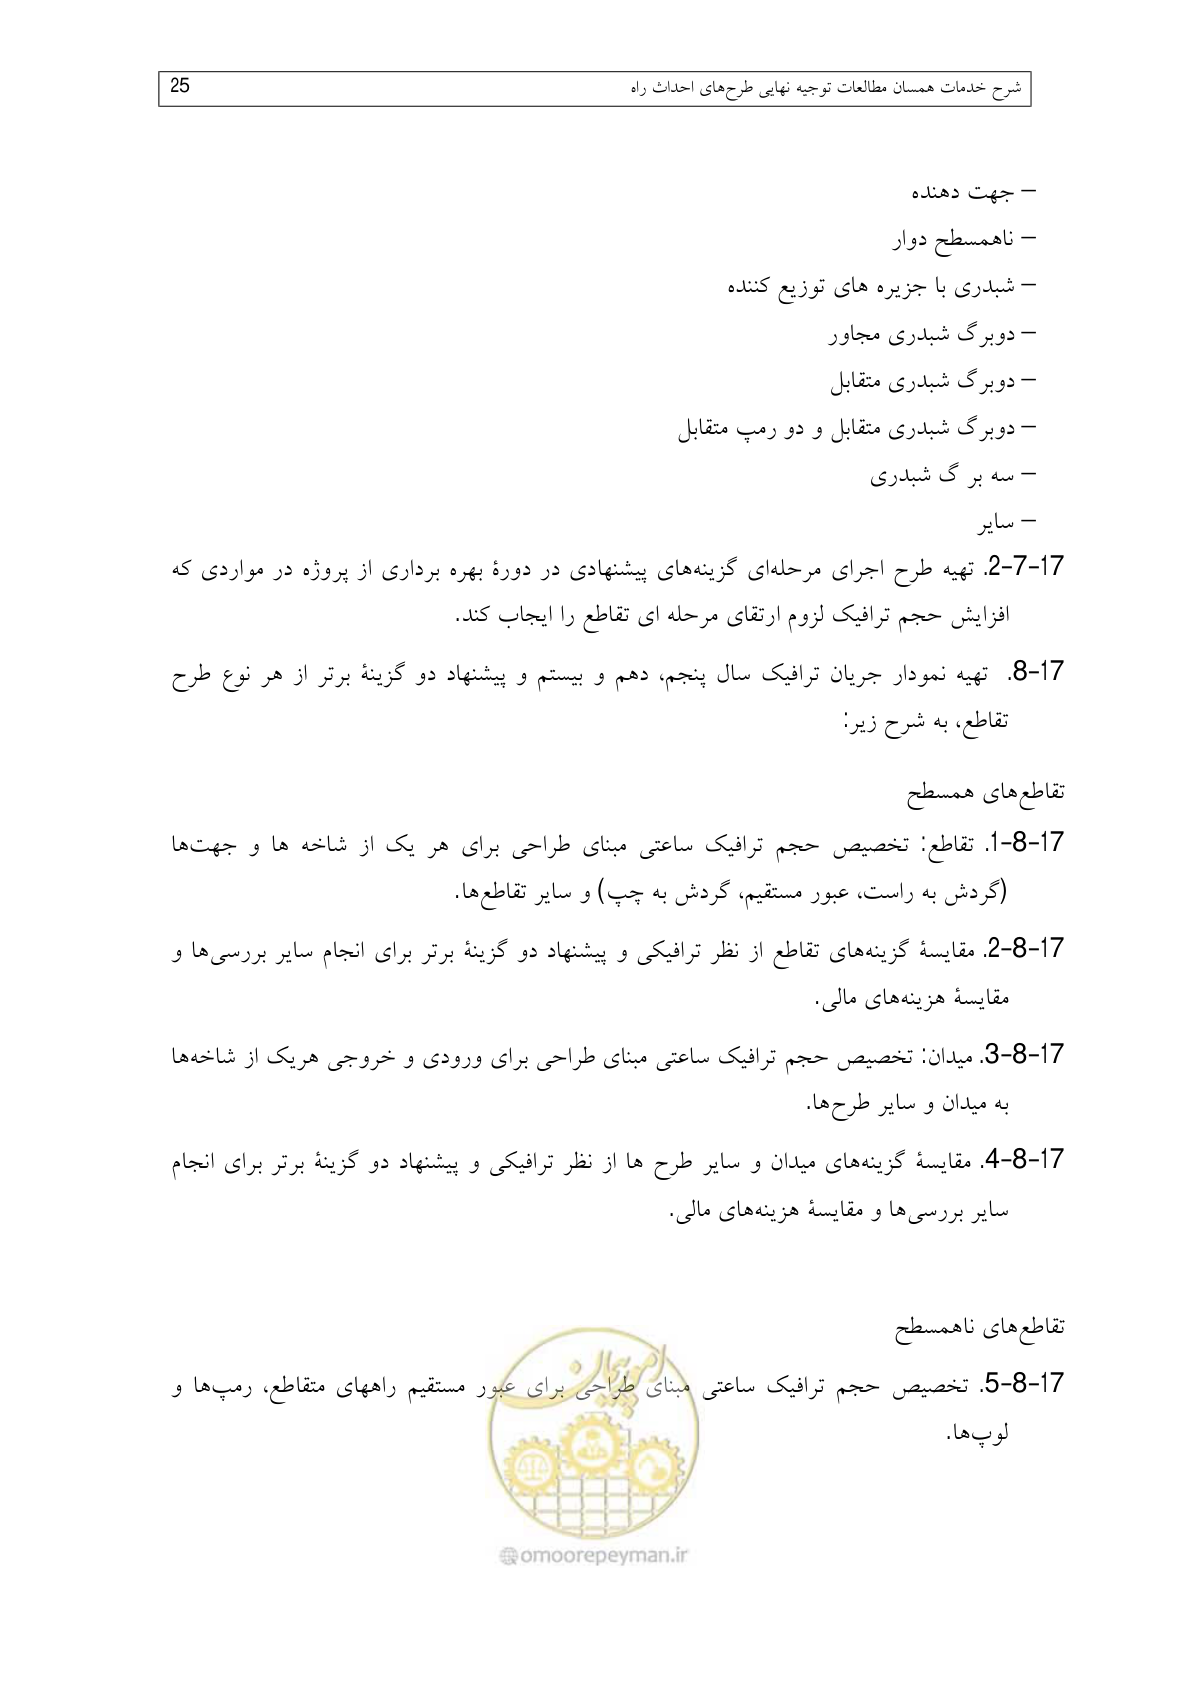 شرح خدمات همسان مطالعات توجیه نهایی طرح‌های احداث راه 25
– جهت دهنده
– ناهمسطح دوار
– شبدری با جزیره های توزیع کننده
– دوبرگ شبدری مجاور
– دوبرگ شبدری متقابل
– دوبرگ شبدری متقابل و دو رمپ متقابل
– سه بر گ شبدری
– سایر
2-7-17. تهیه طرح اجرای مرحله‌ای گزینه‌های پیشنهادی در دورۀ بهره برداری از پروژه در مواردی که
افزایش حجم ترافیک لزوم ارتقای مرحله ای تقاطع را ایجاب کند.
8-17. تهیه نمودار جریان ترافیک سال پنجم، دهم و بیستم و پیشنهاد دو گزینۀ برتر از هر نوع طرح
تقاطع، به شرح زیر:
تقاطع‌های همسطح
1-8-17. تقاطع: تخصیص حجم ترافیک ساعتی مبنای طراحی برای هر یک از شاخه ها و جهت‌ها
(گردش به راست، عبور مستقیم، گردش به چپ) و سایر تقاطع‌ها.
2-8-17. مقایسۀ گزینه‌های تقاطع از نظر ترافیکی و پیشنهاد دو گزینۀ برتر برای انجام سایر بررسی‌ها و
مقایسۀ هزینه‌های مالی.
3-8-17. میدان: تخصیص حجم ترافیک ساعتی مبنای طراحی برای ورودی و خروجی هریک از شاخه‌ها
به میدان و سایر طرح‌ها.
4-8-17. مقایسۀ گزینه‌های میدان و سایر طرح ها از نظر ترافیکی و پیشنهاد دو گزینۀ برتر برای انجام
سایر بررسی‌ها و مقایسۀ هزینه‌های مالی.
تقاطع‌های ناهمسطح
امور پیمان
5-8-17. تخصیص حجم ترافیک ساعتی مبنای طراحی برای عبور مستقیم راههای متقاطع، رمپ‌ها و
لوپ‌ها.
omoorepeyman.ir